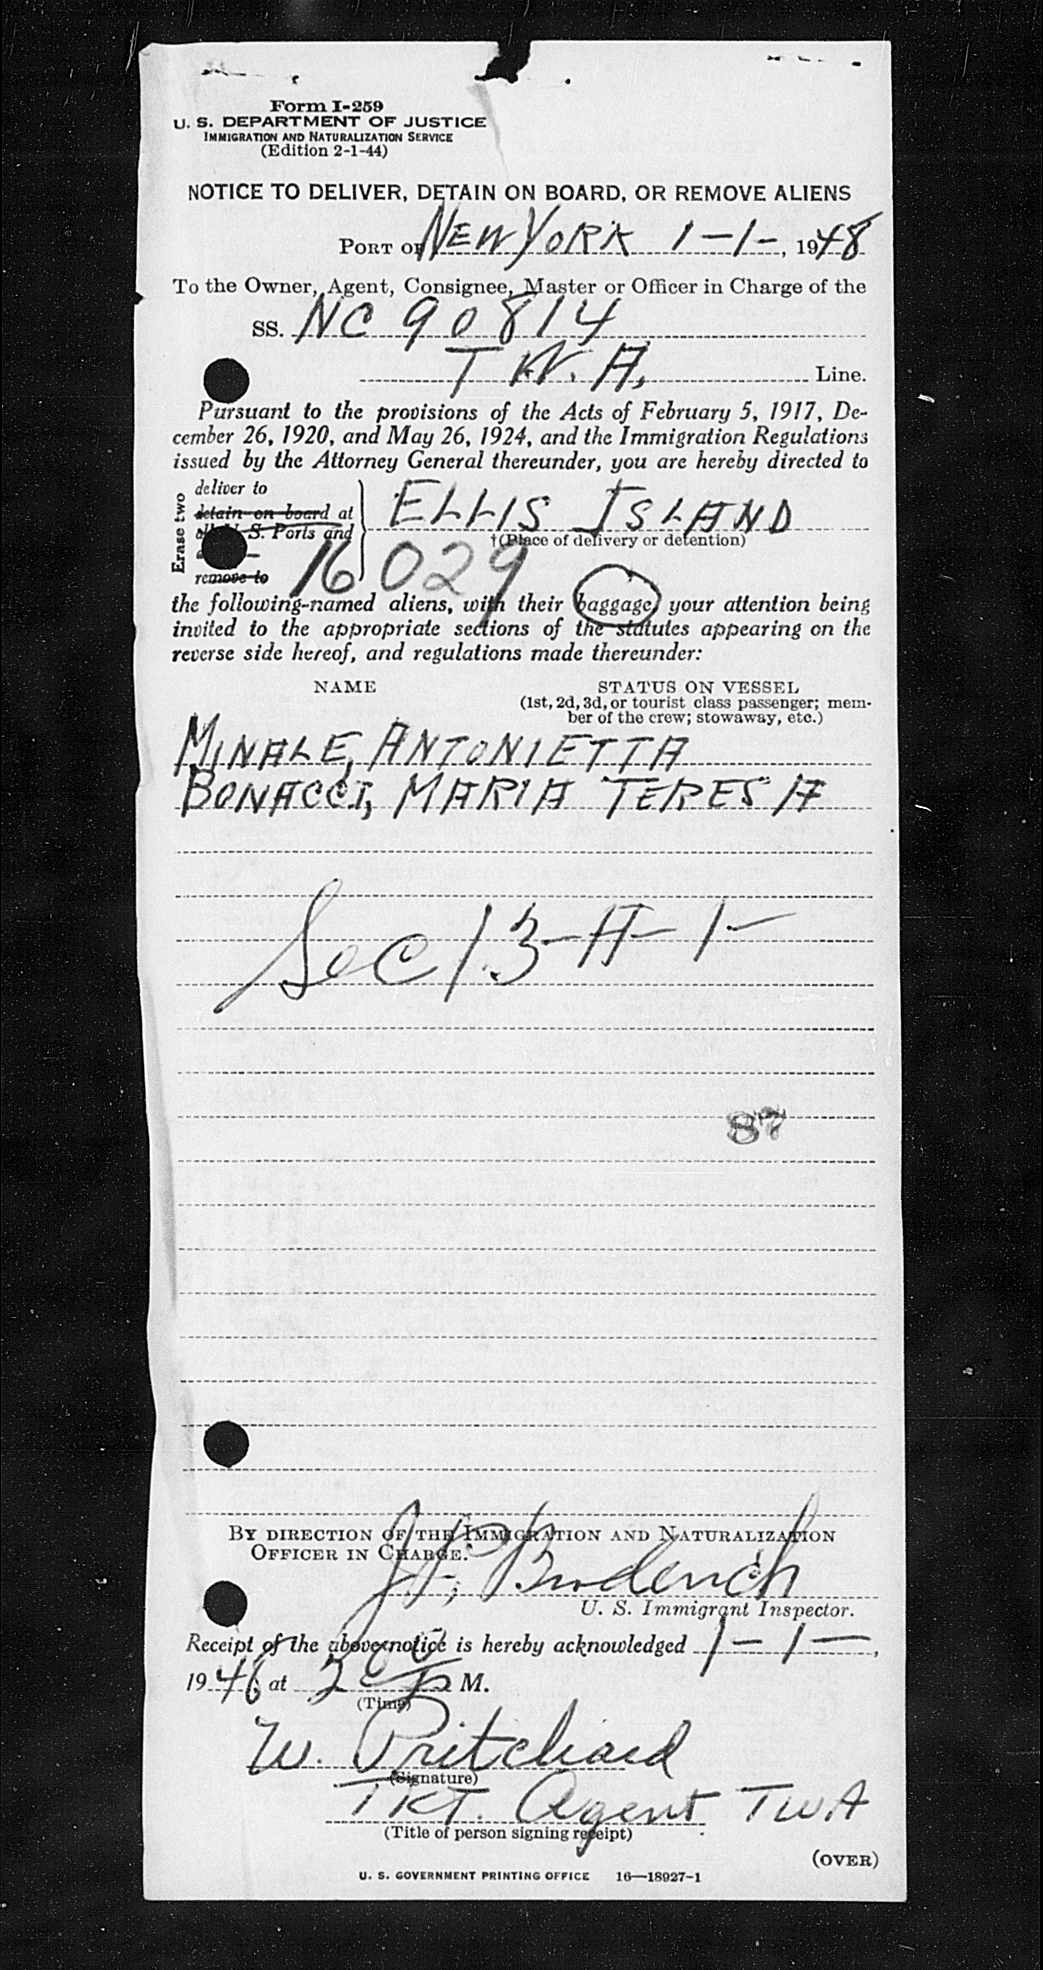 Form I-259
U. S. DEPARTMENT OF JUSTICE
IMMIGRATION AND NATURALIZATION SERVICE
(Edition 2-1-44)
NOTICE TO DELIVER, DETAIN ON BOARD, OR REMOVE ALIENS
PORT OF NEW YORK 1-1-, 1948
To the Owner, Agent, Consignee, Master or Officer in Charge of the
SS. NC 90814
T.W.A. Line.
Pursuant to the provisions of the Acts of February 5, 1917, De-
cember 26, 1920, and May 26, 1924, and the Immigration Regulations
issued by the Attorney General thereunder, you are hereby directed to
Erase two
deliver to
detain on board at
U. S. Ports and
remove to
ELLIS ISLAND
†(Place of delivery or detention)
16029
the following-named aliens, with their baggage, your attention being
invited to the appropriate sections of the statutes appearing on the
reverse side hereof, and regulations made thereunder:
NAME STATUS ON VESSEL
(1st, 2d, 3d, or tourist class passenger; mem-
ber of the crew; stowaway, etc.)
MINALE, ANTONIETTA
BONACCI, MARIA TERESA
Sec 13-A-1-
87
BY DIRECTION OF THE IMMIGRATION AND NATURALIZATION
OFFICER IN CHARGE.
U. S. Immigrant Inspector.
Receipt of the above notice is hereby acknowledged 1-1-,
1946, at 2 00 P M.
(Time)
W. Pritchard
(Signature)
TKT. Agent TWA
(Title of person signing receipt)
(OVER)
U. S. GOVERNMENT PRINTING OFFICE 16—18927-1